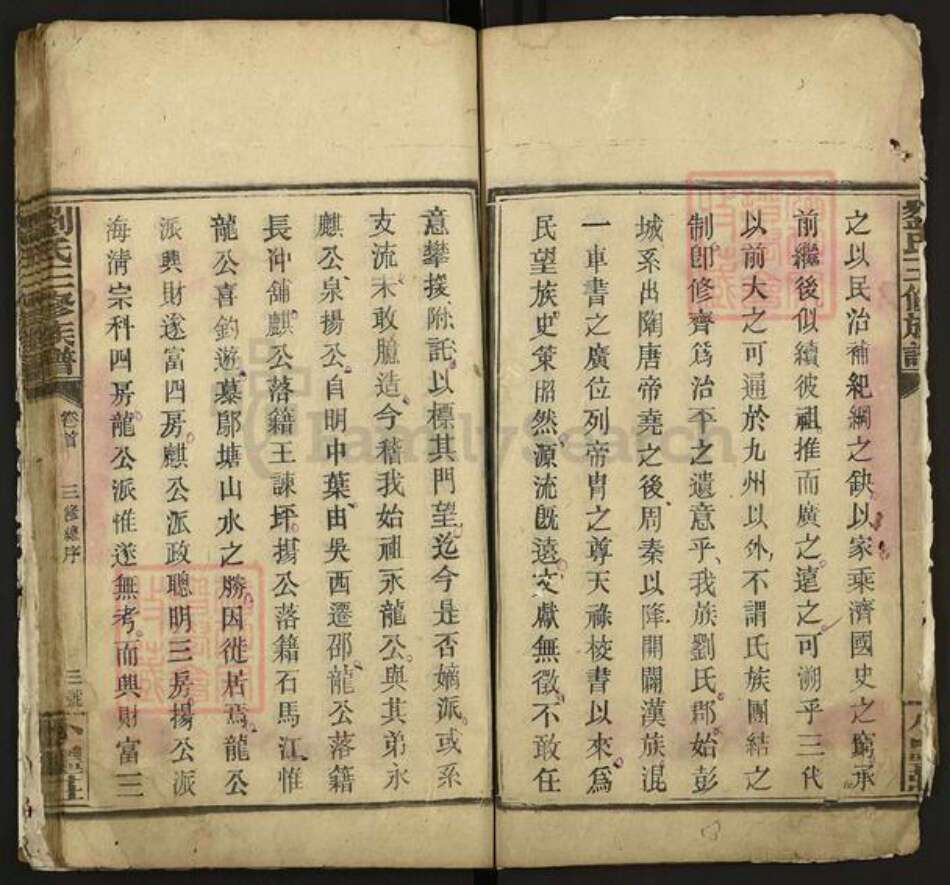 之以民治補紀綱之缺以家乘濟國史之窮承
前繼後似續彼祖推而廣之遠之可溯乎三代
以前大之可通於九州以外不謂氏族團結之
制卽修齊爲治平之遺意乎我族劉氏郡始彭
城系出陶唐帝堯之後周秦以降開闢漢族混
一車書之廣位列帝冑之尊天祿校書以來爲
民望族史策昭然源流旣遠文獻無徵不敢任
意攀援附託以標其門望迄今是否嫡派或系
支流未敢臆造今稽我始祖永龍公與其弟永
麒公泉揚公自明中葉由吳西遷邵龍公落籍
長冲舖麒公落籍王諫坪揚公落籍石馬江惟
龍公喜釣遊慕鄔塘山水之勝因徙居焉龍公
派興財遂富四房麒公派政聰明三房揚公派
海清宗科四房龍公派惟遂無考而興財富三
劉氏三修族譜
卷首
三修總序
三號
劉氏三修族譜
FamilySearch